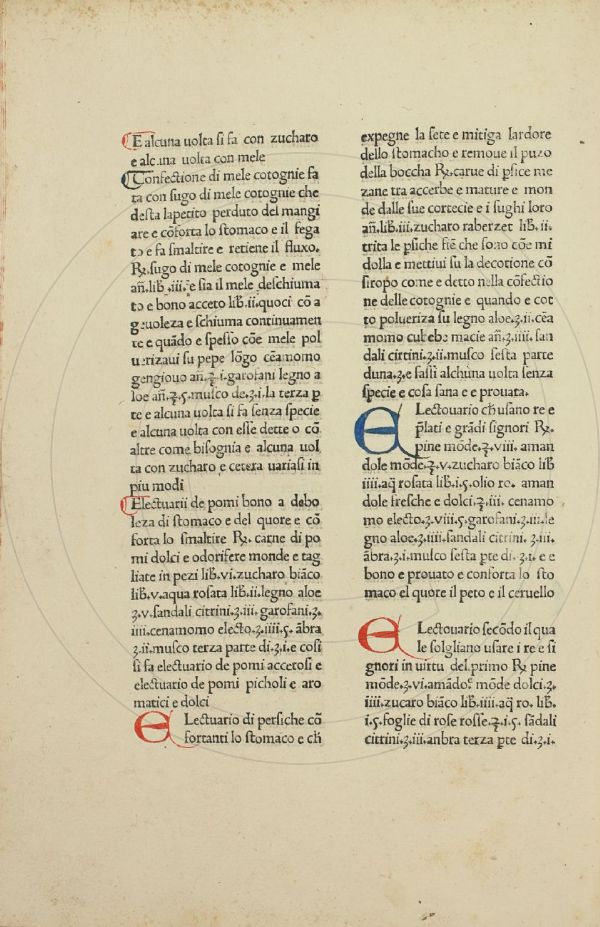 E alcuna uolta si fa con zucharo
e alcuna uolta con mele
Confectione di mele cotognie fa
ta con sugo di mele cotognie che
desta lapetito perduto del mangi
are e cõforta lo stomaco e il fega
to e fa smaltire e retiene il fluxo.
℞.sugo di mele cotognie e mele
añ.lib̃.iii.e sia il mele deschiuma
to e bono acceto lib̃.ii.quoci cõ a
geuoleza e schiuma continuamen
te e quãdo e spesso cõe mele pol
uerizaui su pepe lõgo cẽamomo
gengiouo añ.℥.i.garofani legno a
loe añ.℥.ς.musco de.ʒ.i.la terza p
te e alcuna uolta si fa senza specie
e alcuna uolta con esse dette o cõ
altre come bisognia e alcuna uol
ta con zucharo e cetera uariasi in
piu modi
Electuarii de pomi bono a debo
leza di stomaco e del quore e cõ
forta lo smaltire ℞. carne di po
mi dolci e odorifere monde e tag
liate in pezi lib̃.vi.zucharo biãco
lib̃.v.aqua rosata lib̃.ii.legno aloe
ʒ.v.sandali citrini.ʒ.iii.garofani.ʒ.
iiii.cenamomo electo.ʒ.iiii.ς.ãbra
ʒ.ii.musco terza parte di.ʒ.i.e cosi
si fa electuario de pomi accetosi e
electuario de pomi picholi e aro
matici e dolci
ELectuario di persiche cõ
fortanti lo stomaco e cħ
expegne la sete e mitiga lardore
dello stomacho e remoue il puzo
della boccha ℞.carue di psice me
zane tra accerbe e mature e mon
de dalle sue cortecie e i sughi loro
añ.lib̃.iii.zucharo raberzet lib̃.ii.
trita le psiche fitẽ che sono cõe mi
dolla e mettiui su la decotione cõ
siropo come e detto nella cõfectio
ne delle cotognie e quando e cot
to polueriza su legno aloe.ʒ.ii.cẽa
momo cubebe macie añ.ʒ.iiii.san
dali citrini.ʒ.ii.musco sesta parte
duna.ʒ.e fassi alchuna uolta senza
specie e cosa sana e e prouata.
ELectouario cħ usano re e
p̃lati e grãdi signori ℞.
pine mõde.℥.viii. aman
dole mõde.℥.v.zucharo biãco lib̃
iiii.aq̃ rosata lib̃.i.ς.olio ro. aman
dole fresche e dolci.℥.iii. cenamo
mo electo.ʒ.viii.ς.garofani.ʒ.iii.le
gno aloe.ʒ.iiii.sandali citrini. ʒ.iii.
ãbra.ʒ.i.musco sesta pte di. ʒ.i. e e
bono e prouato e conforta lo sto
maco el quore il peto e il ceruello
ELectouario secõdo il qua
le solgliano usare i re e si
gnori in uirtu del primo ℞ pine
mõde.ʒ.vi.amãdoľ mõde dolci.ʒ.
iiii.zucaro biãco lib̃.iiii.aq̃ ro. lib̃.
i.ς.foglie di rose rosse.℥.i.ς. sãdali
citrini.ʒ.iii.anbra terza pte di.ʒ.i.